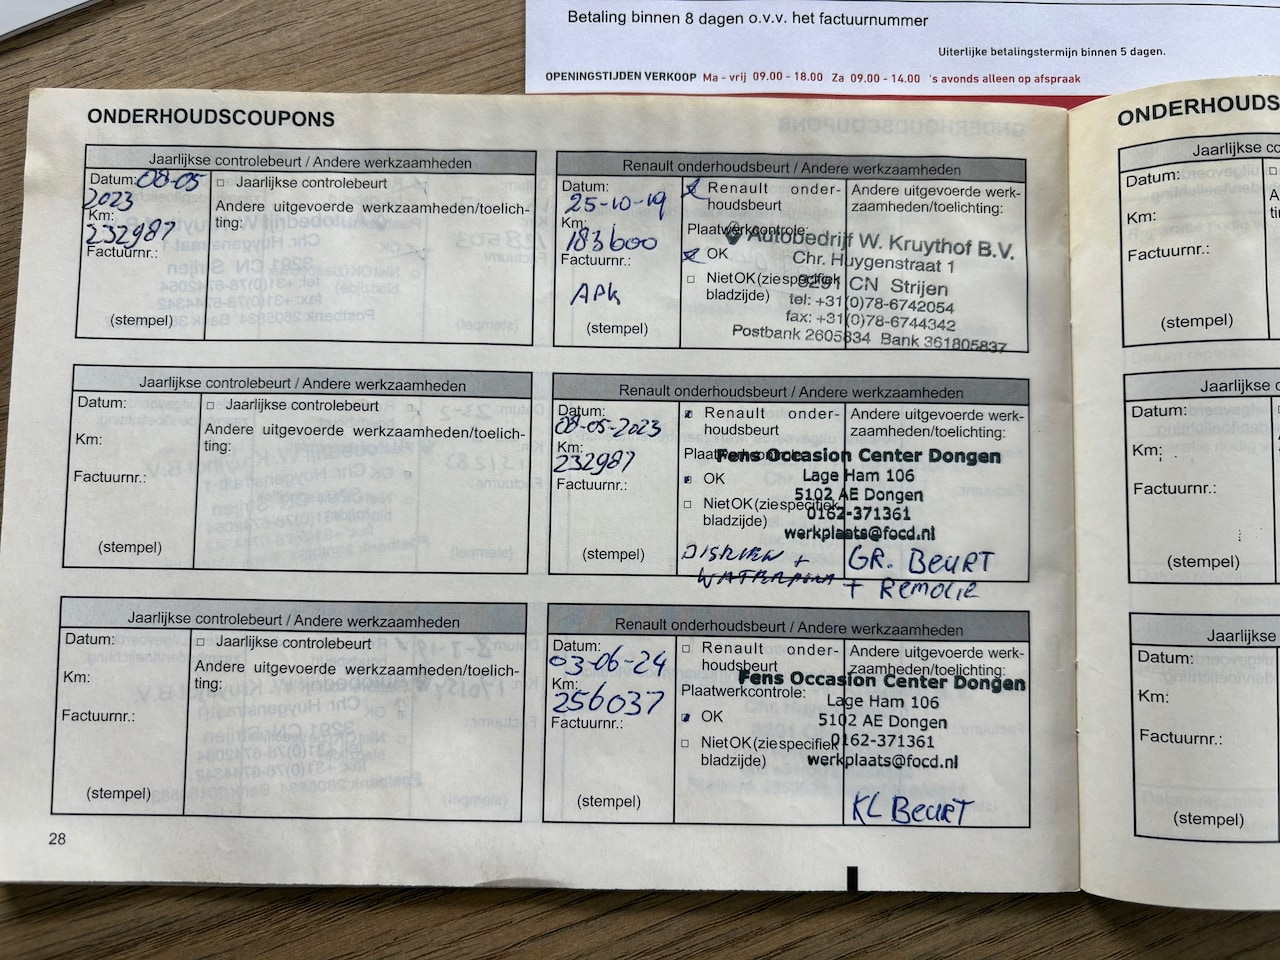 Betaling binnen 8 dagen o.v.v. het factuurnummer
Uiterlijke betalingstermijn binnen 5 dagen.
OPENINGSTIJDEN VERKOOP Ma - vrij 09.00 - 18.00 Za 09.00 - 14.00 's avonds alleen op afspraak
ONDERHOUDSCOUPONS
Jaarlijkse controlebeurt / Andere werkzaamheden
Datum: 08-05
2023
Km:
232987
Factuurnr.:
(stempel)
□ Jaarlijkse controlebeurt
Andere uitgevoerde werkzaamheden/toelich-
ting:
Renault onderhoudsbeurt / Andere werkzaamheden
Datum:
25-10-19
Km:
183600
Factuurnr.:
APK
(stempel)
Renault onder-
houdsbeurt
Plaatwerkcontrole:
OK
□ Niet OK (zie specifiek
bladzijde)
Andere uitgevoerde werk-
zaamheden/toelichting:
Autobedrijf W. Kruythof B.V.
Chr. Huygenstraat 1
3291 CN Strijen
tel: +31(0)78-6742054
fax: +31(0)78-6744342
Postbank 2605834 Bank 361805837
Jaarlijkse controlebeurt / Andere werkzaamheden
Datum:
Km:
Factuurnr.:
(stempel)
□ Jaarlijkse controlebeurt
Andere uitgevoerde werkzaamheden/toelich-
ting:
Renault onderhoudsbeurt / Andere werkzaamheden
Datum:
08-05-2023
Km:
232987
Factuurnr.:
(stempel)
Renault onder-
houdsbeurt
Plaatwerkcontrole:
OK
□ Niet OK (zie specifiek
bladzijde)
Andere uitgevoerde werk-
zaamheden/toelichting:
Fens Occasion Center Dongen
Lage Ham 106
5102 AE Dongen
0162-371361
werkplaats@focd.nl
GR. BEURT
+ REMOLIE
Jaarlijkse controlebeurt / Andere werkzaamheden
Datum:
Km:
Factuurnr.:
(stempel)
□ Jaarlijkse controlebeurt
Andere uitgevoerde werkzaamheden/toelich-
ting:
Renault onderhoudsbeurt / Andere werkzaamheden
Datum:
03-06-24
Km:
256037
Factuurnr.:
(stempel)
□ Renault onder-
houdsbeurt
Plaatwerkcontrole:
OK
□ Niet OK (zie specifiek
bladzijde)
Andere uitgevoerde werk-
zaamheden/toelichting:
Fens Occasion Center Dongen
Lage Ham 106
5102 AE Dongen
0162-371361
werkplaats@focd.nl
KL BEURT
28
ONDERHOUDS
Jaarlijkse co
Datum:
Km:
Factuurnr.:
(stempel)
Jaarlijkse c
Datum:
Km:
Factuurnr.:
(stempel)
Jaarlijkse
Datum:
Km:
Factuurnr.:
(stempel)